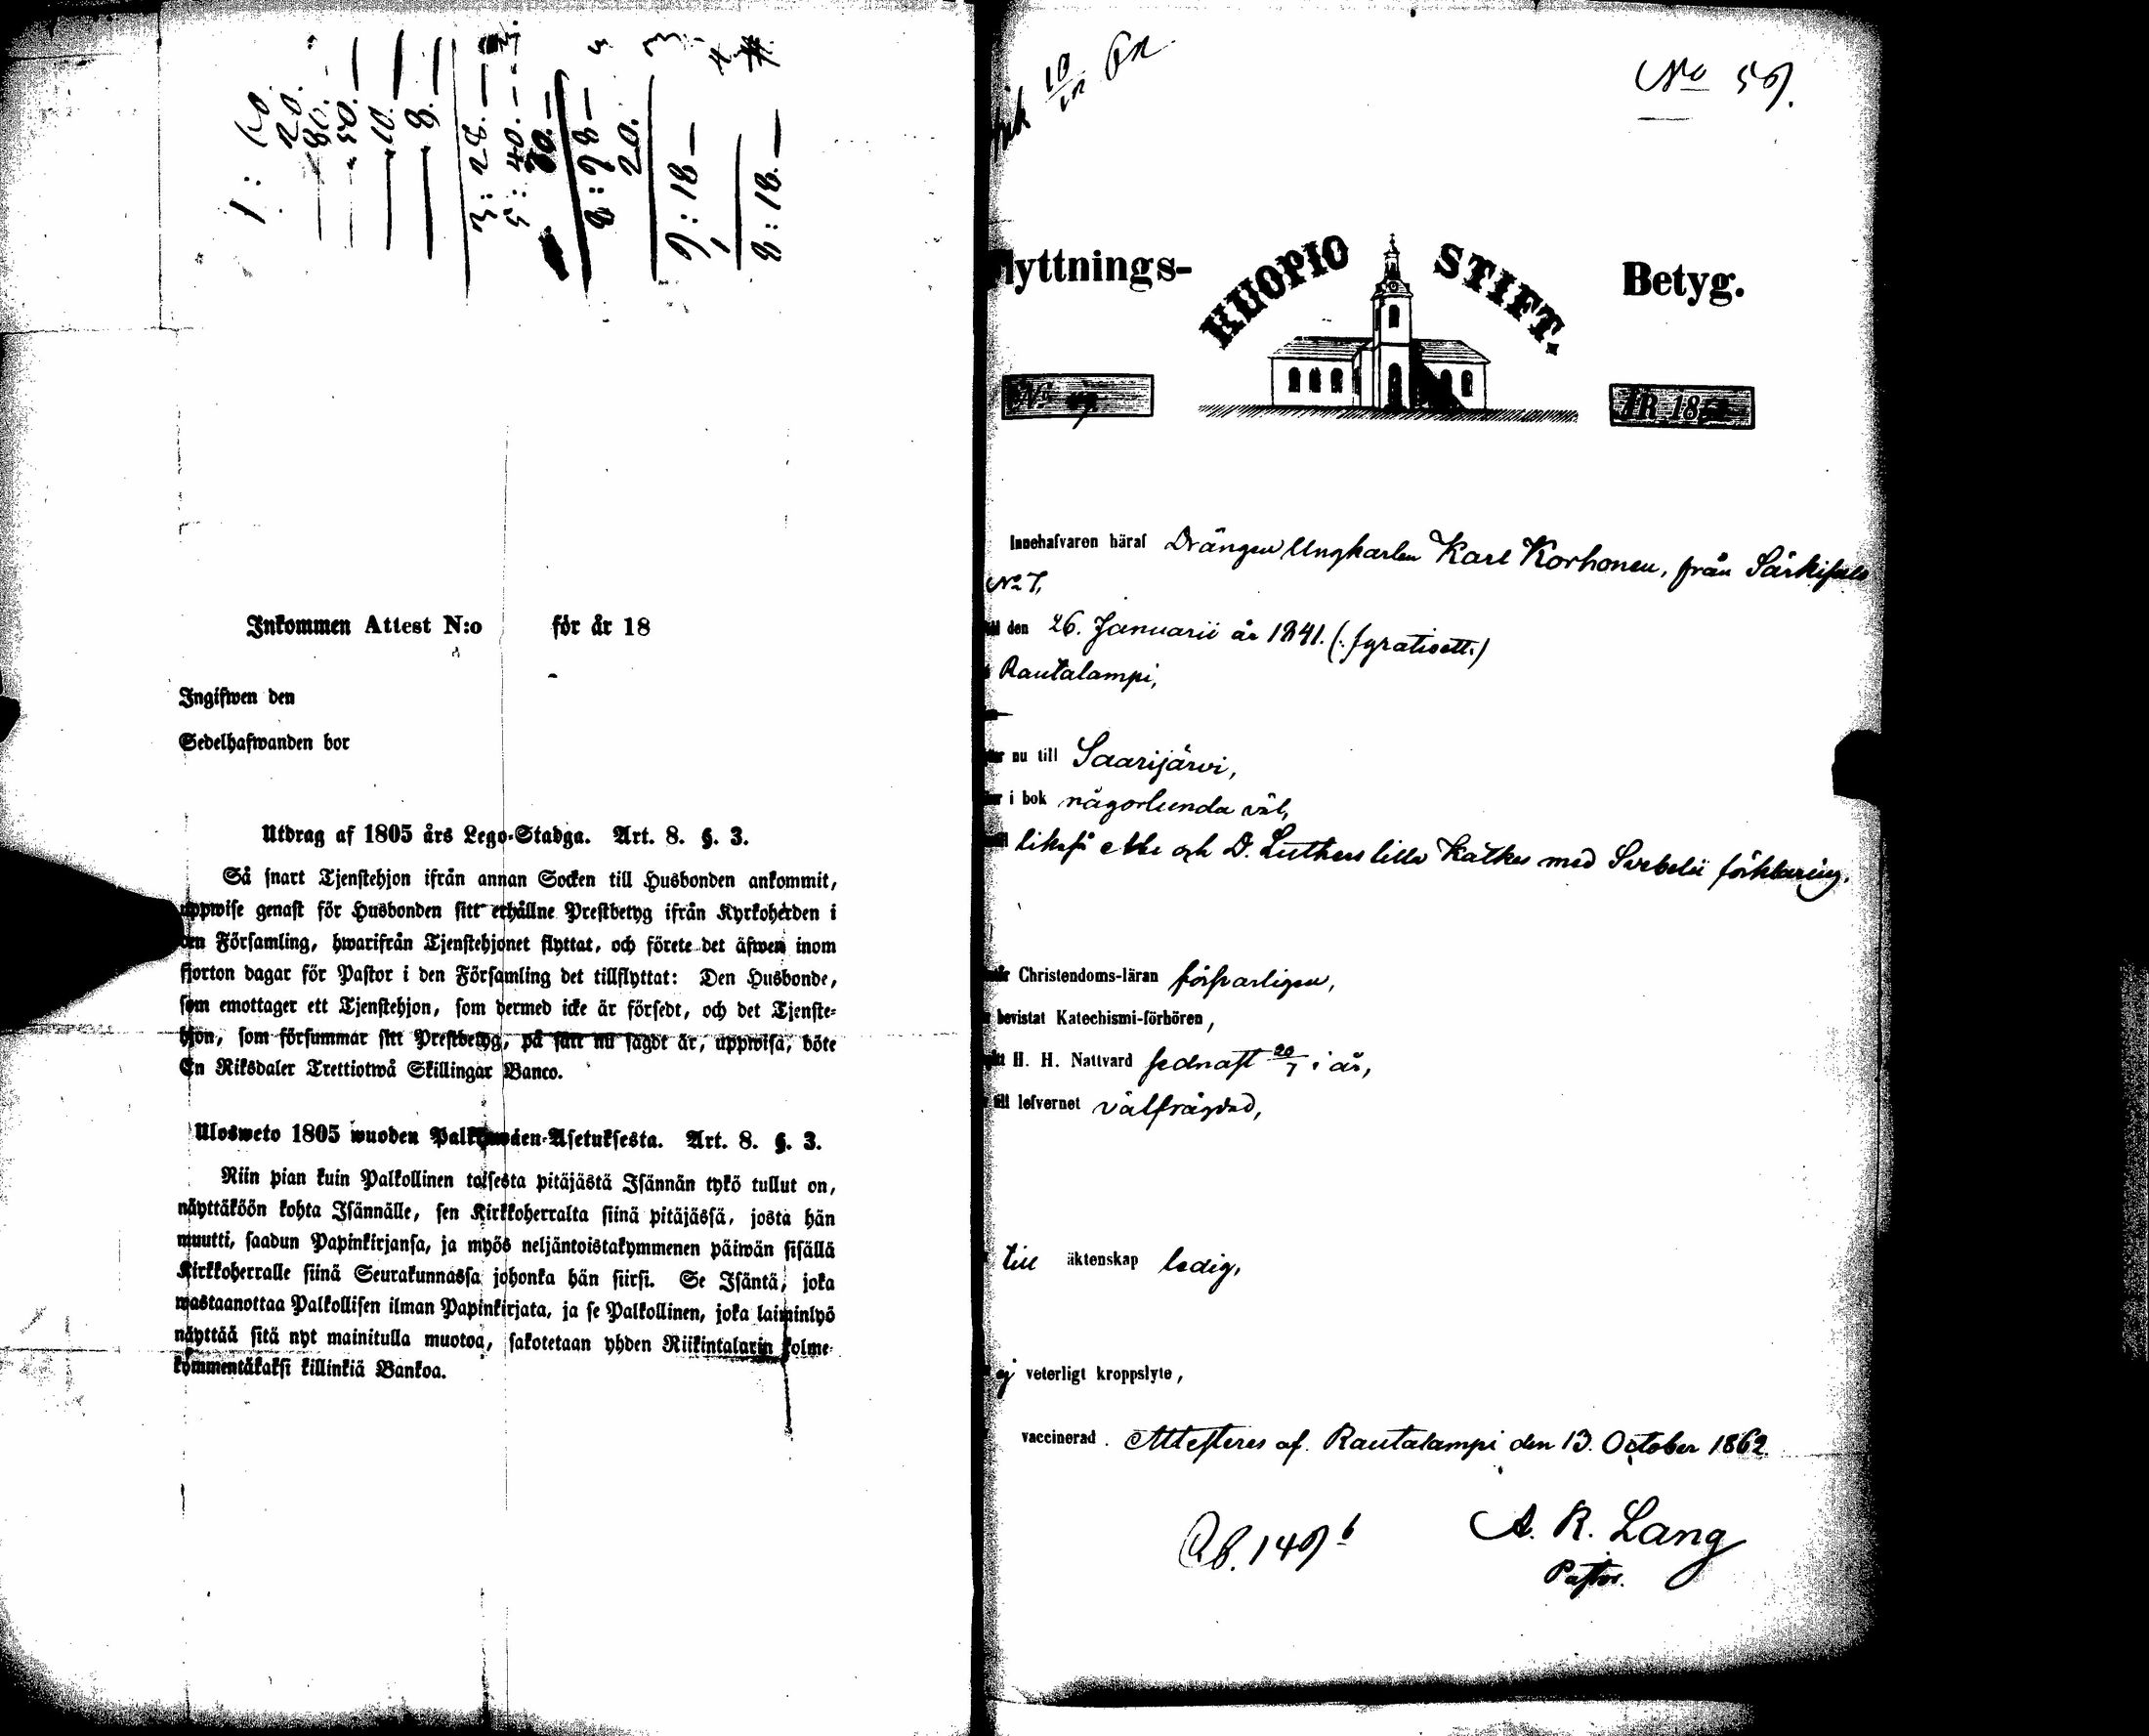 1:
20.
80.
50. —
10. —
8. —
3: 28. —
5: 40. —
60. —
8: 98 —
20.
9: 18 —
1
8: 18. —
Inkommen Attest N:o för år 18
Ingifwen den
Sedelhafwanden bor
Utdrag af 1805 års Lego-Stadga. Art. 8. §. 3.
Så snart Tjenstehjon ifrån annan Socken till Husbonden ankommit,
uppwise genast för Husbonden sitt erhållne Prestbetyg ifrån Kyrkoherden i
den Församling, hwarifrån Tjenstehjonet flyttat, och förete det äfwen inom
fjorton dagar för Pastor i den Församling det tillflyttat: Den Husbonde,
som emottager ett Tjenstehjon, som dermed icke är försedt, och det Tjenste-
hjon, som försummar sitt Prestbetyg, på sätt nu sagdt är, uppwisa, böte
En Riksdaler Trettiotwå Skillingar Banco.
Ulosweto 1805 wuoden Palkkawäen-Asetuksesta. Art. 8. §. 3.
Niin pian kuin Palkollinen toisesta pitäjästä Isännän tykö tullut on,
näyttäköön kohta Isännälle, sen Kirkkoherralta siinä pitäjässä, josta hän
muutti, saadun Papinkirjansa, ja myös neljäntoistakymmenen päiwän sisällä
Kirkkoherralle siinä Seurakunnassa johonka hän siirsi. Se Isäntä, joka
wastaanottaa Palkollisen ilman Papinkirjata, ja se Palkollinen, joka laiminlyö
näyttää sitä nyt mainitulla muotoa, sakotetaan yhden Riikintalarin kolme-
kymmentäkaksi killinkiä Bankoa.
No 59.
lyttnings- KUOPIO STIFT. Betyg.
No
ÅR 18
Innehafvaren häraf Drängen Ungkarlen Karl Korhonen, från
No 7,
den 26. Januarii år 1841. (: fyratioett.)
Rautalampi,
nu till Saarijärvi,
i bok någorlunda väl,
likaså Abc och D. Luthers lilla Katkes med Svebelii förklaring.
Christendoms-läran försvarligen,
bevistat Katechismi-förhören,
H. H. Nattvard sednast 20/7 i år,
till lefvernet välfrägdad,
till äktenskap ledig,
ej veterligt kroppslyte,
vaccinerad. Attesteres af. Rautalampi den 13. October 1862.
A. R. Lang
Pastor.